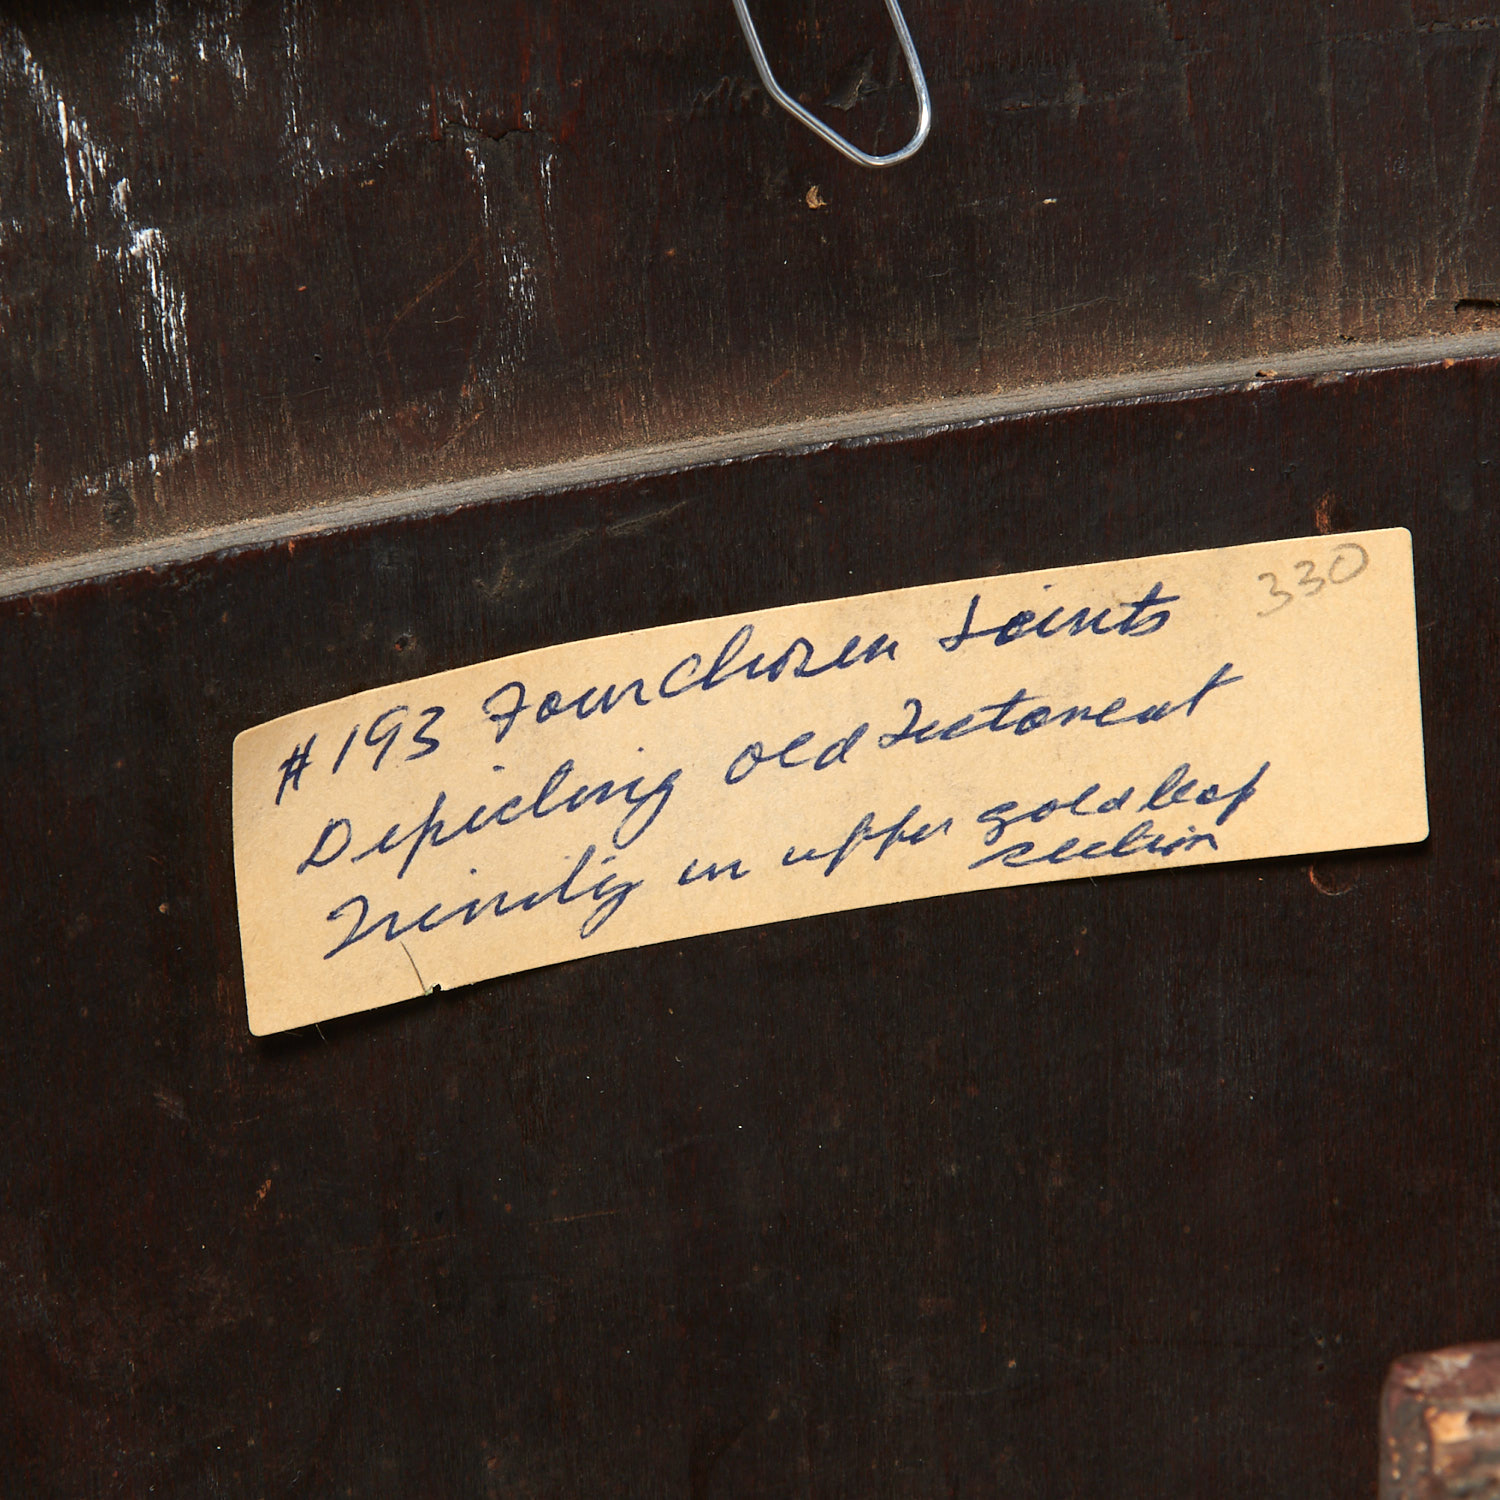 330
#193 Four Chosen Saints
Depicting Old Testament
Trinity in upper gold leaf
section